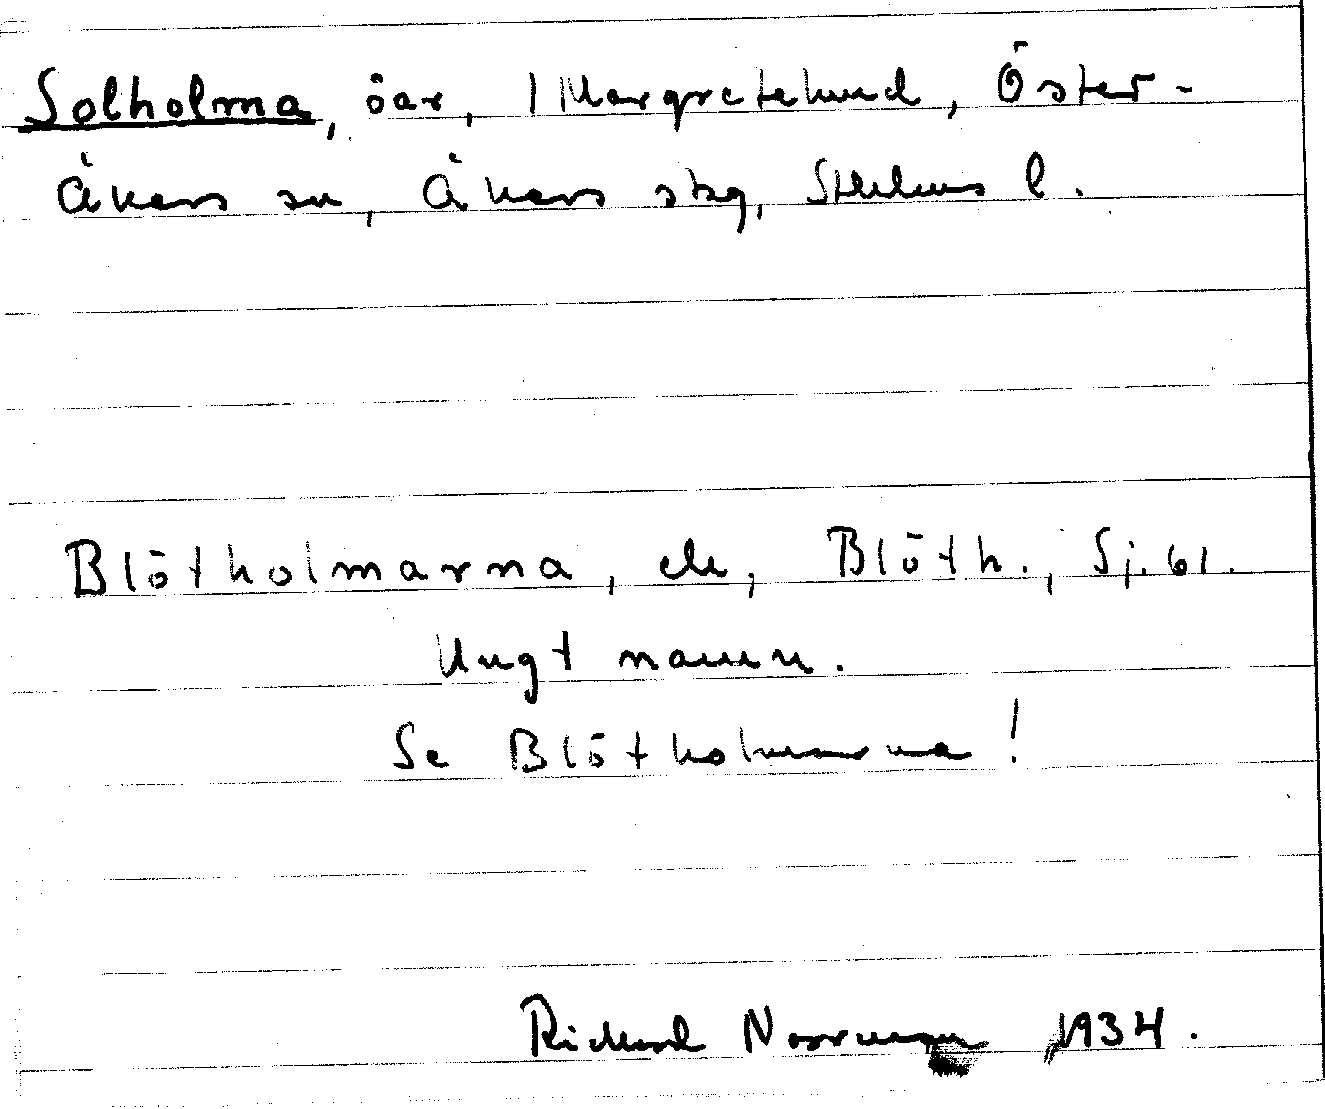 Solholma, öar, Margretelund, Öster-
Åkers sn, Åkers skg, Sthlms l.
Blötholmarna, ek, Blöth., Sj. 61.
Ungt namn.
Se Blötholmarna!
Richard Norrman 1934.